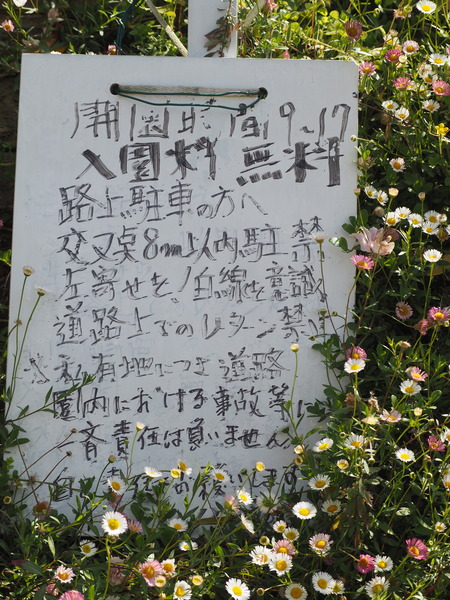 開園時間9〜17
入園料 無料
路上駐車の方へ
交叉点8m以内駐 禁
左寄せを!白線を意識
道路上でのUターン禁
※私有地につき道路
園内における事故等
一斉責任は負いません
自 お願い